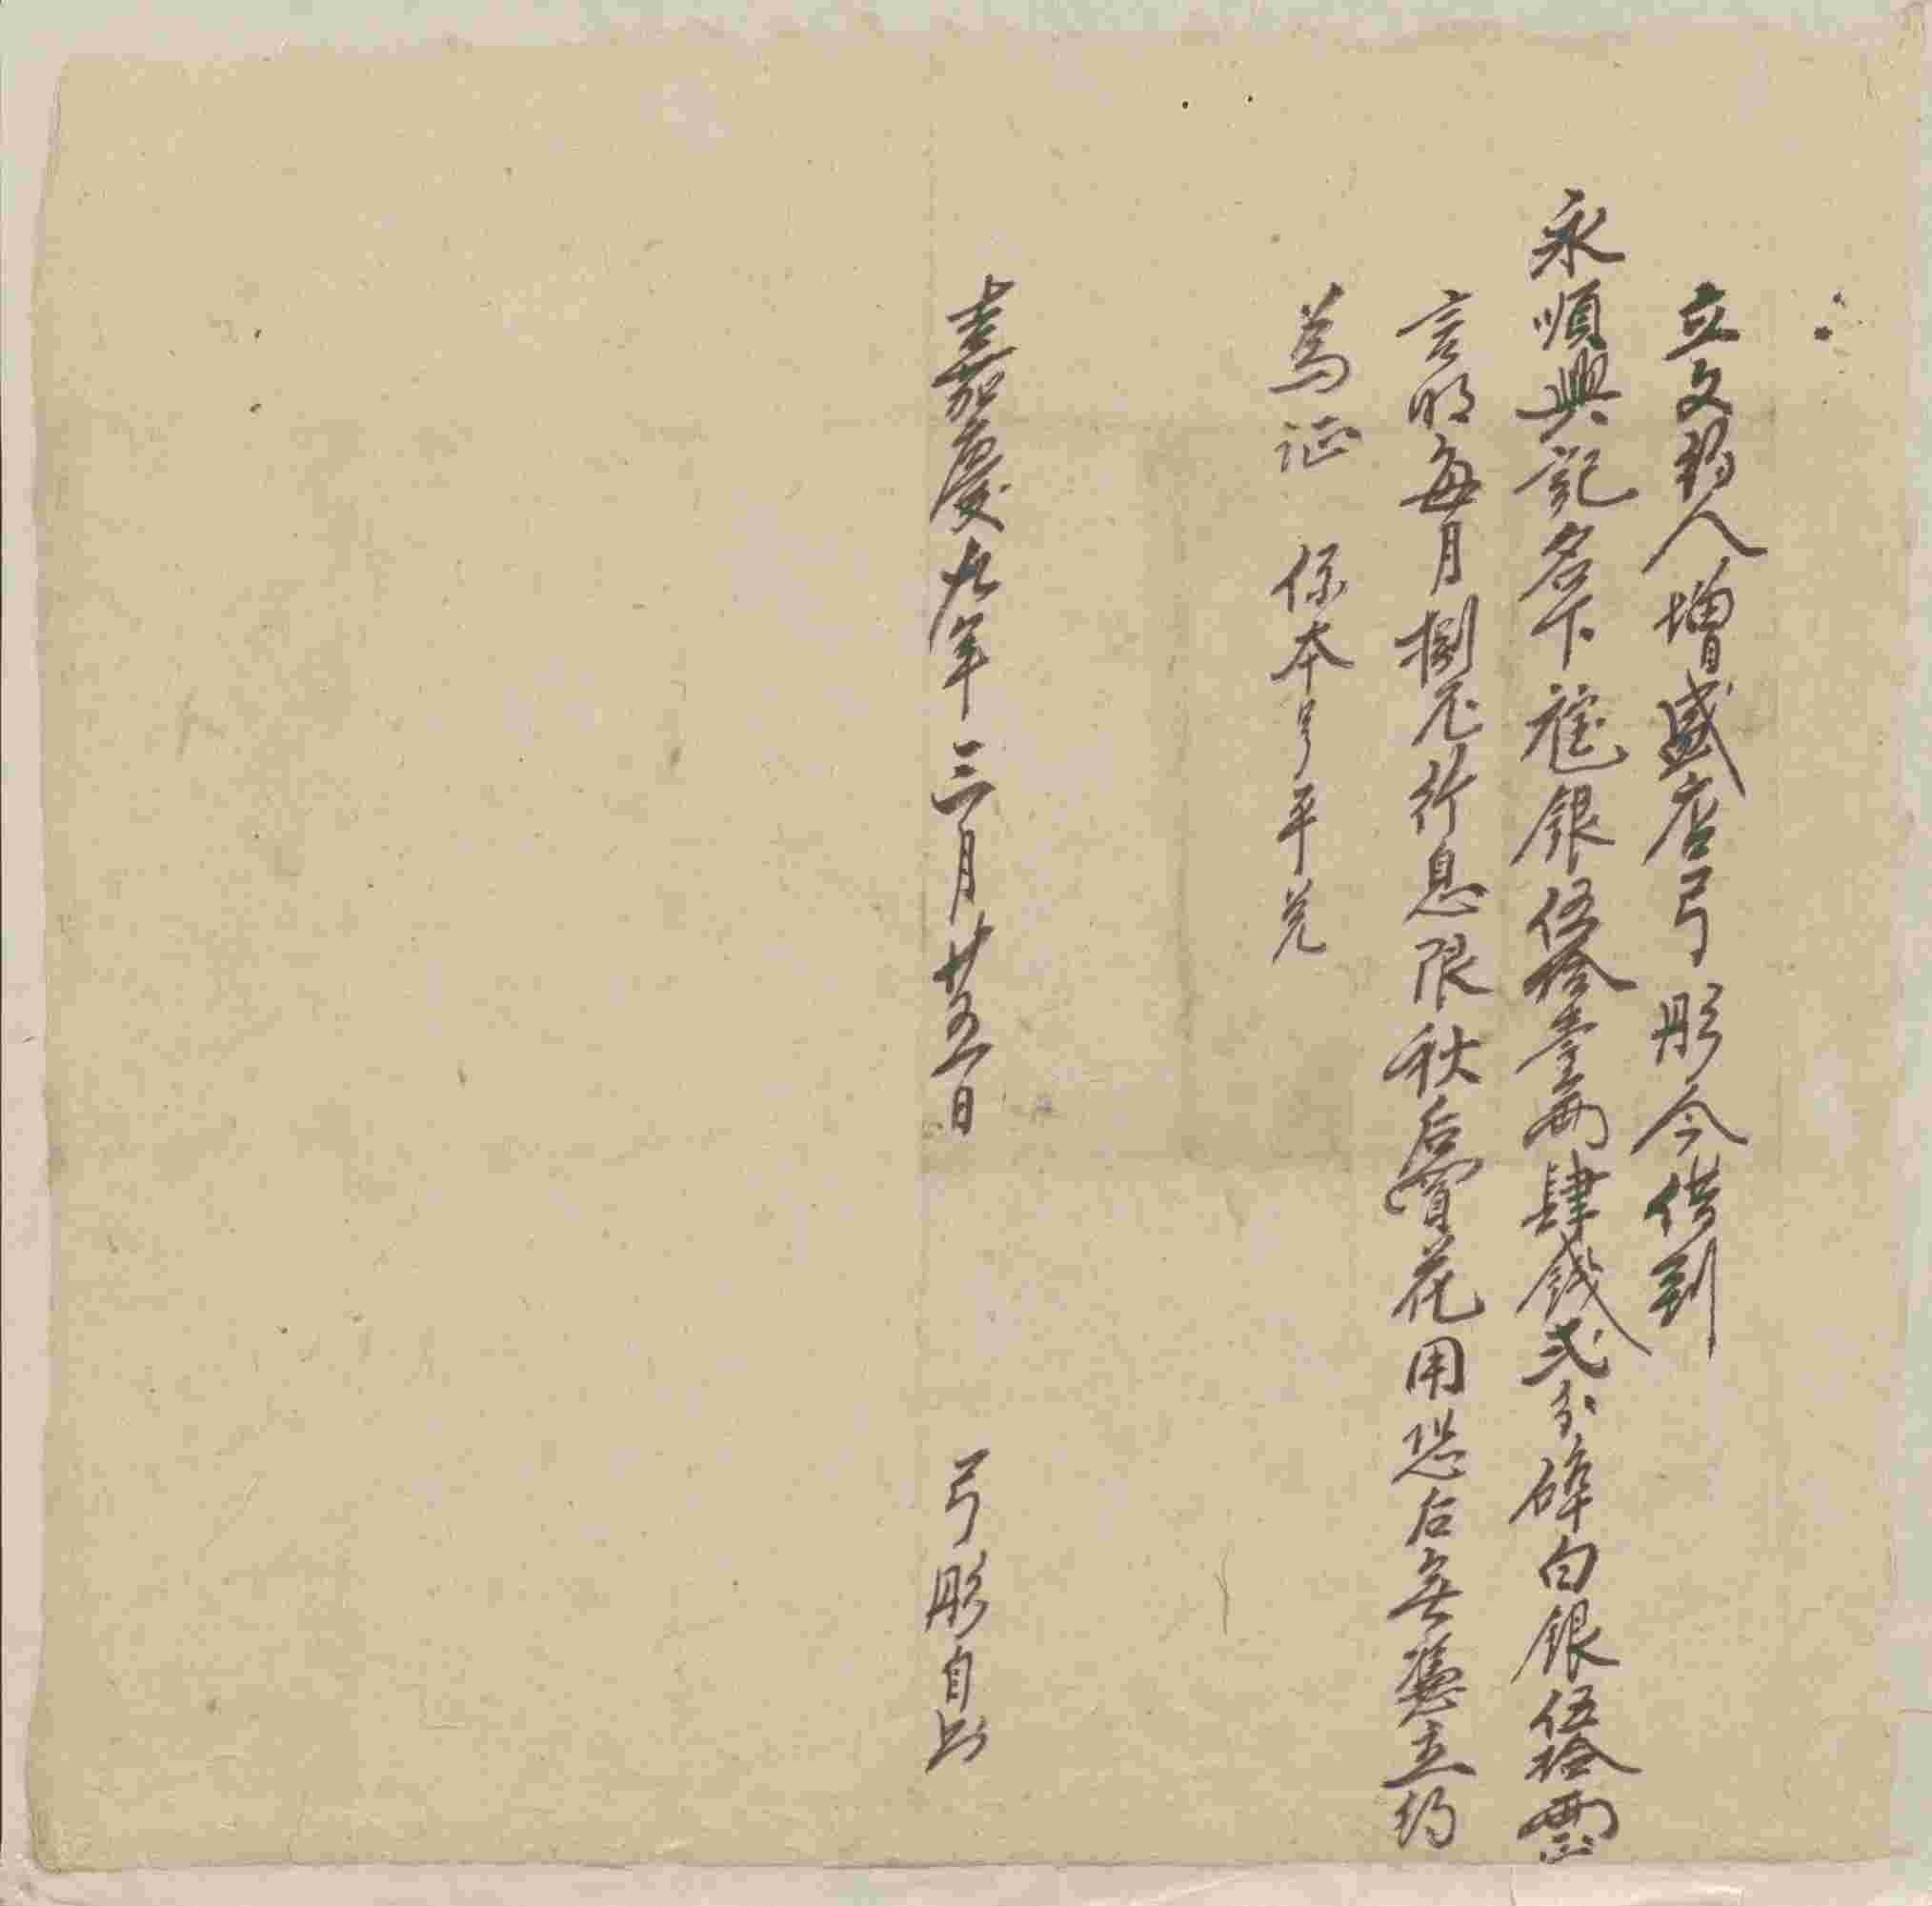 立文約人增盛店弓彤今借到
永順興記名下 銀伍拾壹兩肆錢弍分碎白銀伍拾兩正
言明每月捌厘行息限秋后 花用恐后無憑立約
為証 係本號平兑
嘉慶九年三月廿五日 弓彤自